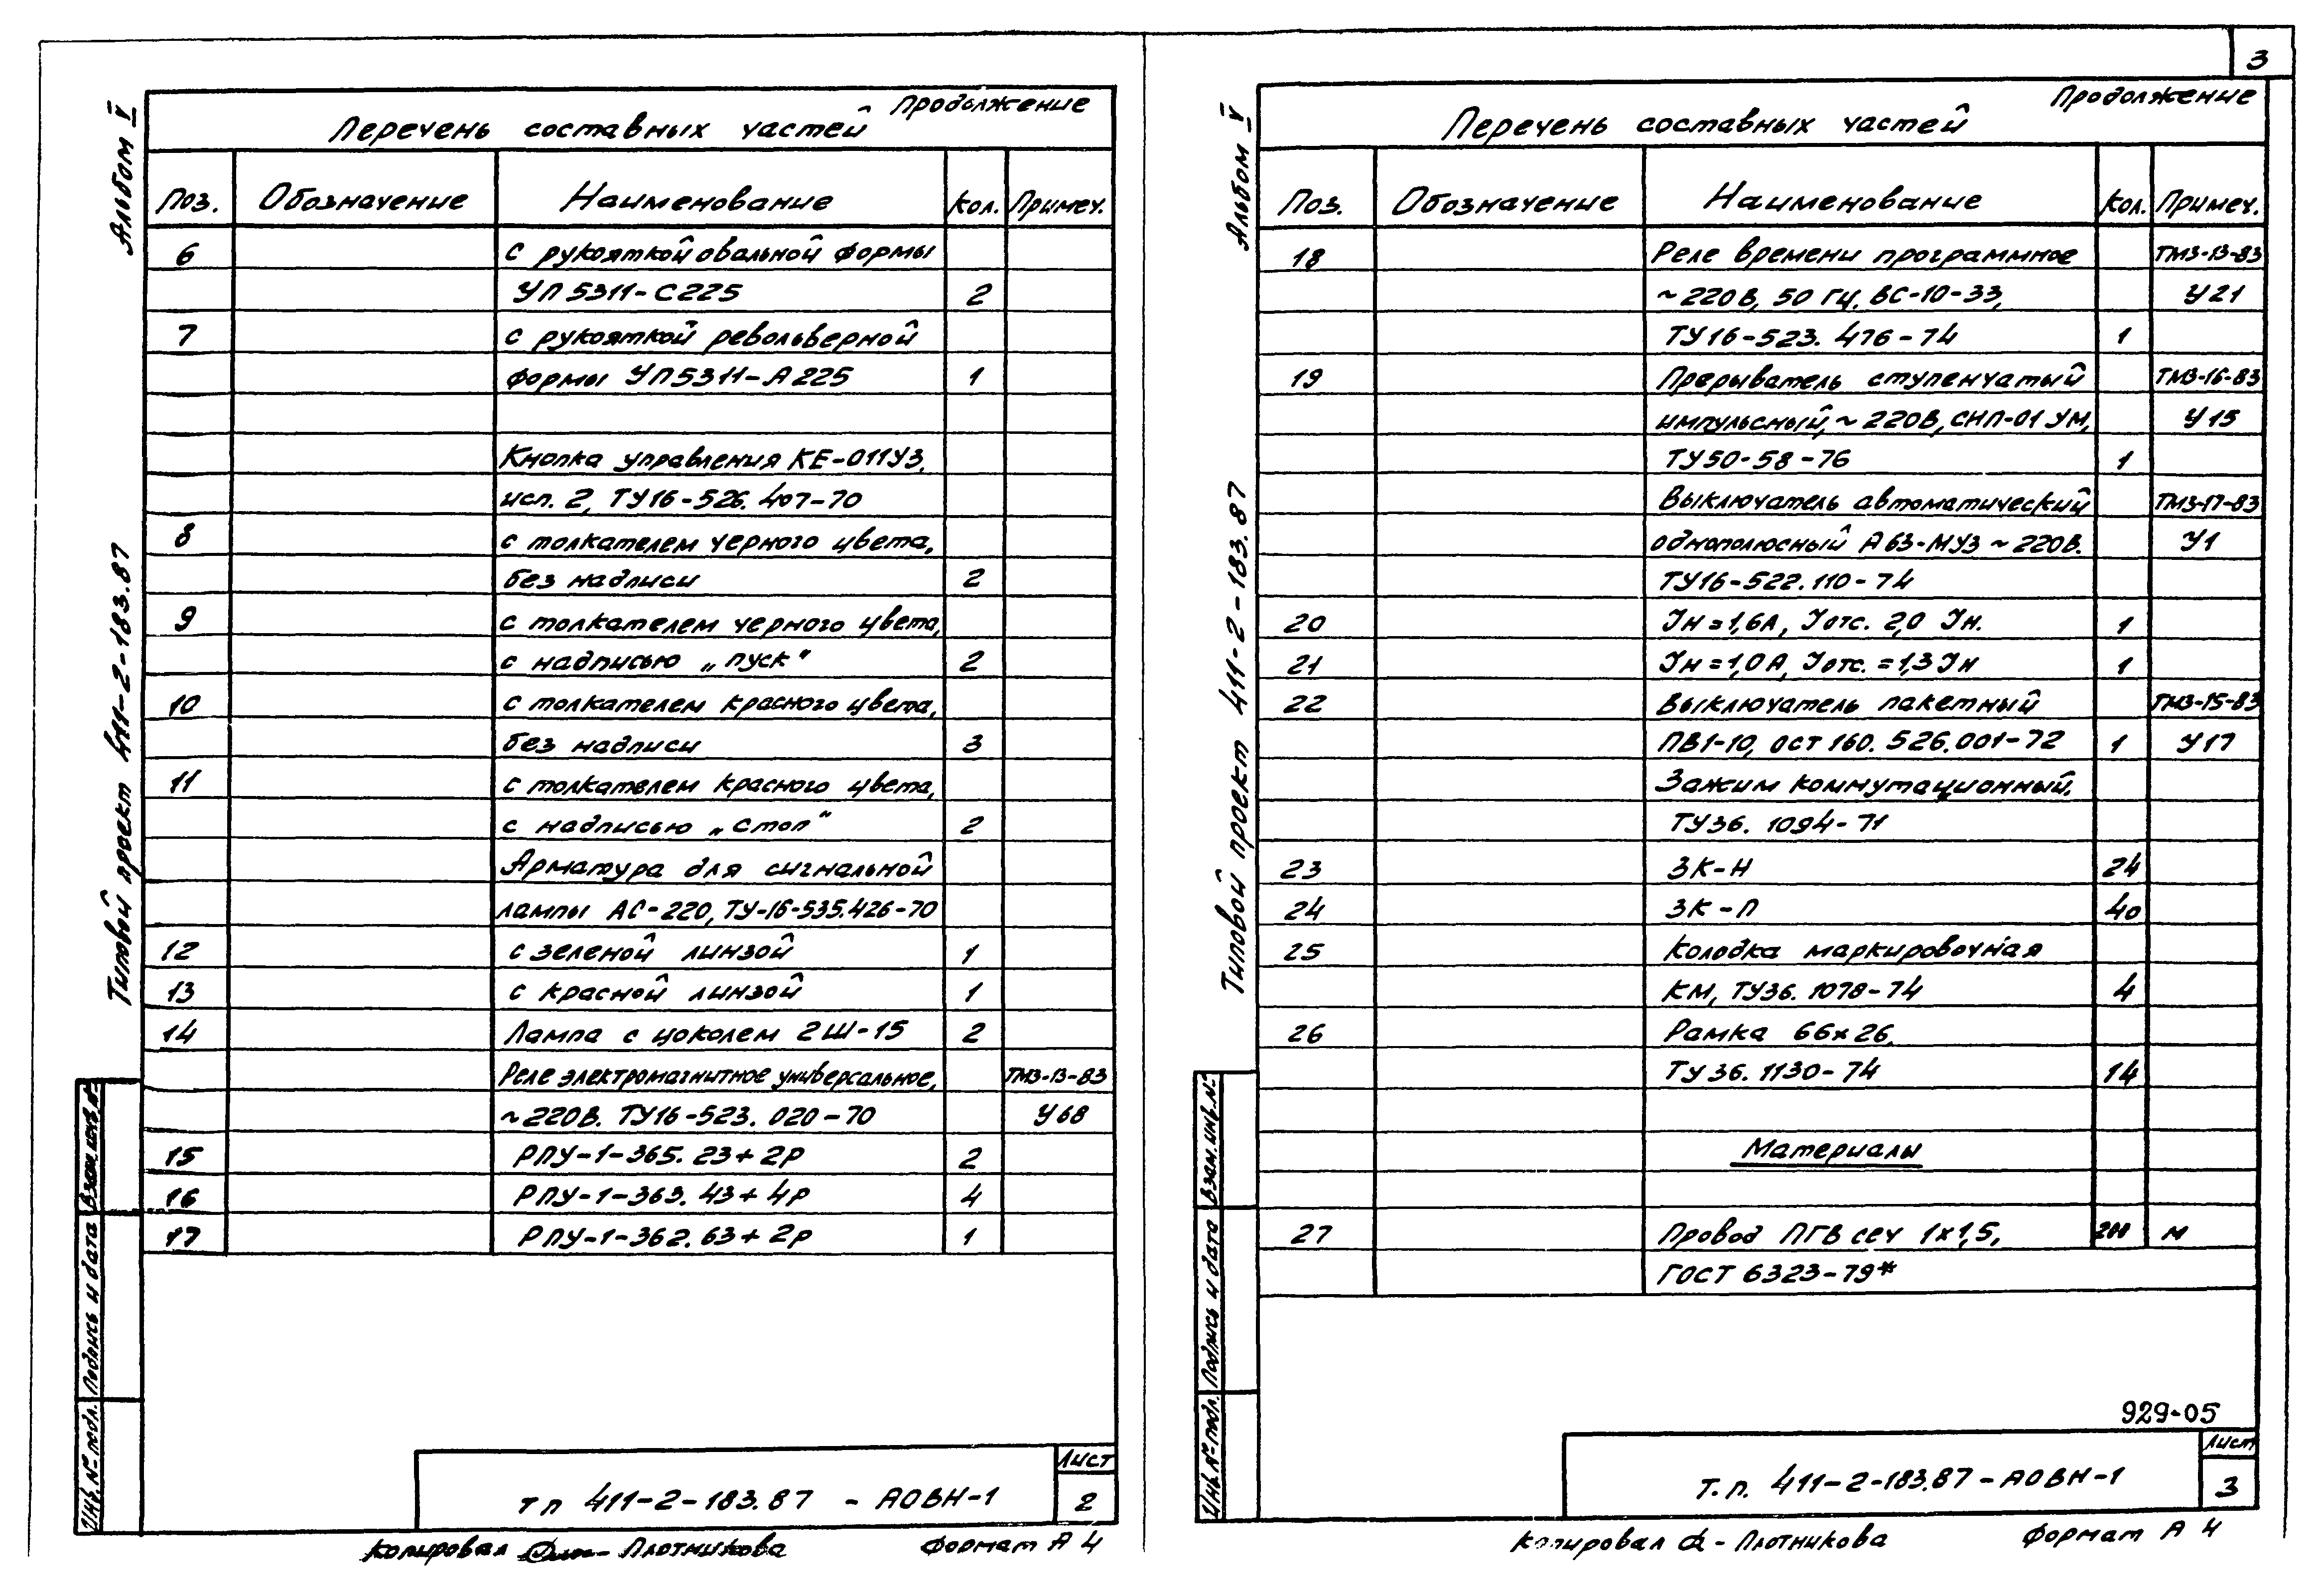 3
Альбом V
Типовой проект 411-2-183.87
Продолжение
Перечень составных частей
Поз. Обозначение Наименование Кол. Примеч.
6 с рукояткой овальной формы
УП 5311-С225 2
7 с рукояткой револьверной
формы УП5311-А225 1
Кнопка управления КЕ-011У3,
исп. 2, ТУ16-526. 407-70
8 с толкателем черного цвета,
без надписи 2
9 с толкателем черного цвета,
с надписью „пуск" 2
10 с толкателем красного цвета,
без надписи 3
11 с толкателем красного цвета,
с надписью „стоп" 2
Арматура для сигнальной
лампы АС-220, ТУ-16-535.426-70
12 с зеленой линзой 1
13 с красной линзой 1
14 Лампа с цоколем 2Ш-15 2
Реле электромагнитное универсальное, ТМ3-13-83
~220В. ТУ16-523. 020-70 У68
15 РПУ-1-365. 23+2р 2
16 РПУ-1-363. 43+4р 4
17 РПУ-1-362. 63+2р 1
Инв. № подл. Подпись и дата Взам. инв. №
тп 411-2-183.87 - АОВН-1
Лист
2
Копировал Плотникова Формат А4
Альбом V
Типовой проект 411-2-183.87
Продолжение
Перечень составных частей
Поз. Обозначение Наименование Кол. Примеч.
18 Реле времени программное ТМ3-13-83
~220В, 50 Гц. ВС-10-33, У21
ТУ16-523. 476-74 1
19 Прерыватель ступенчатый ТМ3-16-83
импульсный, ~220В, СИП-01 УМ, У15
ТУ50-58-76 1
Выключатель автоматический ТМ3-17-83
однополюсный А63-МУ3 ~220В. У1
ТУ16-522.110-74
20 Iн=1,6А, Iотс. 2,0 Iн. 1
21 Iн=1,0А, Iотс.=1,3 Iн 1
22 Выключатель пакетный ТМ3-15-83
ПВ1-10, ост 160. 526.001-72 1 У17
Зажим коммутационный,
ТУ36. 1094-71
23 ЗК-Н 24
24 ЗК-П 40
25 Колодка маркировочная
КМ, ТУ36. 1078-74 4
26 Рамка 66х26,
ТУ36. 1130-74 14
Материалы
27 Провод ПГВ сеч 1х1,5, 200 м
ГОСТ 6323-79*
Инв. № подл. Подпись и дата Взам. инв. №
929-05
Т.п. 411-2-183.87-АОВН-1
Лист
3
Копировал - Плотникова Формат А4